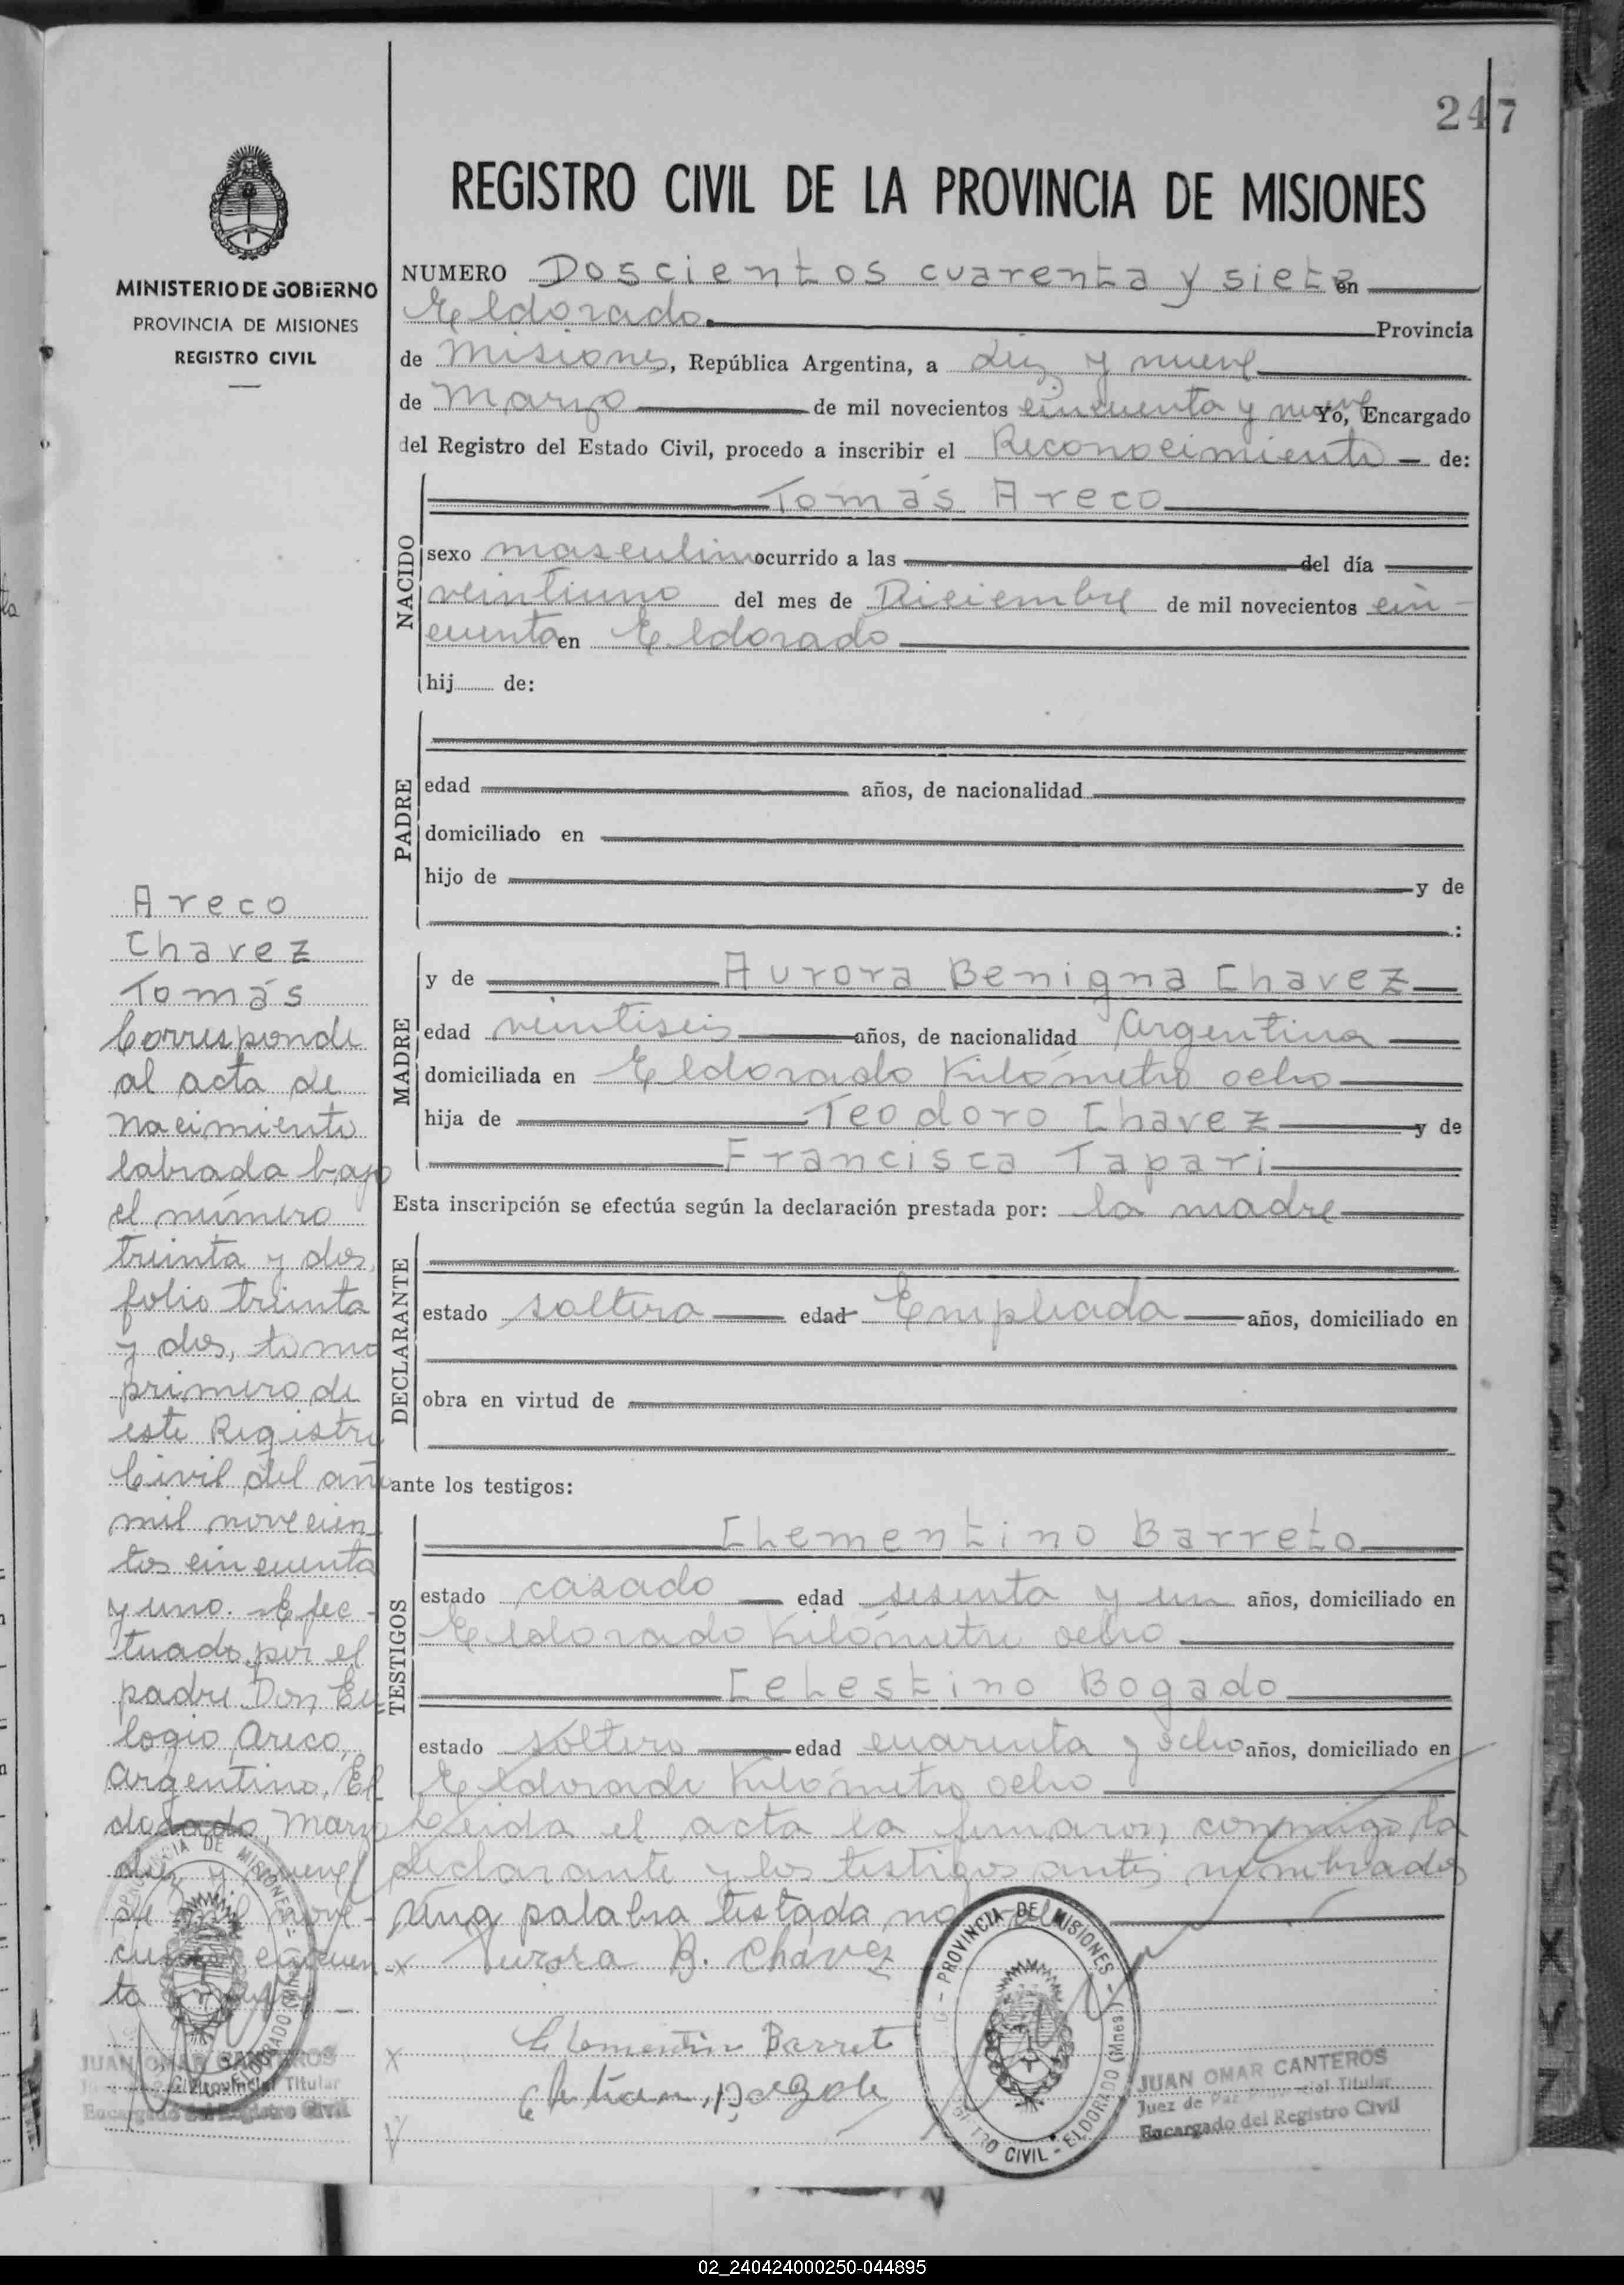 247
REGISTRO CIVIL DE LA PROVINCIA DE MISIONES
MINISTERIO DE GOBIERNO
PROVINCIA DE MISIONES
REGISTRO CIVIL
NUMERO Doscientos cuarenta y siete en
Eldorado Provincia
de Misiones, República Argentina, a diez y nueve
de Marzo de mil novecientos cincuenta y nueve Yo, Encargado
del Registro del Estado Civil, procedo a inscribir el Reconocimiento de:
NACIDO
Tomás Areco
sexo masculino ocurrido a las del día
veintiuno del mes de Diciembre de mil novecientos cin-
cuenta en Eldorado
hij de:
PADRE
edad años, de nacionalidad
domiciliado en
hijo de y de
:
MADRE
y de Aurora Benigna Chavez
edad veintiseis años, de nacionalidad Argentina
domiciliada en Eldorado Kilómetro ocho
hija de Teodoro Chavez y de
Francisca Tapari
Esta inscripción se efectúa según la declaración prestada por: la madre
DECLARANTE
estado soltera edad Empleada años, domiciliado en
obra en virtud de
ante los testigos:
TESTIGOS
Clementino Barreto
estado casado edad sesenta y un años, domiciliado en
Eldorado Kilómetro ocho
Celestino Bogado
estado soltero edad cuarenta y ocho años, domiciliado en
Eldorado Kilómetro ocho
Leida el acta la firmaron conmigo la
declarante y los testigos antes nombrados
Una palabra testada no
x Aurora B. Chávez
x Clementin Barret
Areco
Chavez
Tomás
Corresponde
al acta de
nacimiento
labrada bajo
el número
treinta y dos,
folio treinta
y dos, tomo
primero de
este Registro
Civil del año
mil novecien-
tos cincuenta
y uno. Efec-
tuado por el
padre Don Eu
logio Areco,
Argentino, El
dorado, Marzo
diez y nueve
de mil nove-
cientos cincuen
ta y nueve
PROVINCIA DE MISIONES
ELDORADO (Mnes.)
JUAN OMAR CANTEROS
Juez de Paz Provincial Titular
Encargado del Registro Civil
- PROVINCIA DE MISIONES -
REGISTRO CIVIL - ELDORADO (Mnes.)
JUAN OMAR CANTEROS
Juez de Paz Provincial Titular
Encargado del Registro Civil
R
S
T
U
V
X
Y
Z
02_240424000250-044895